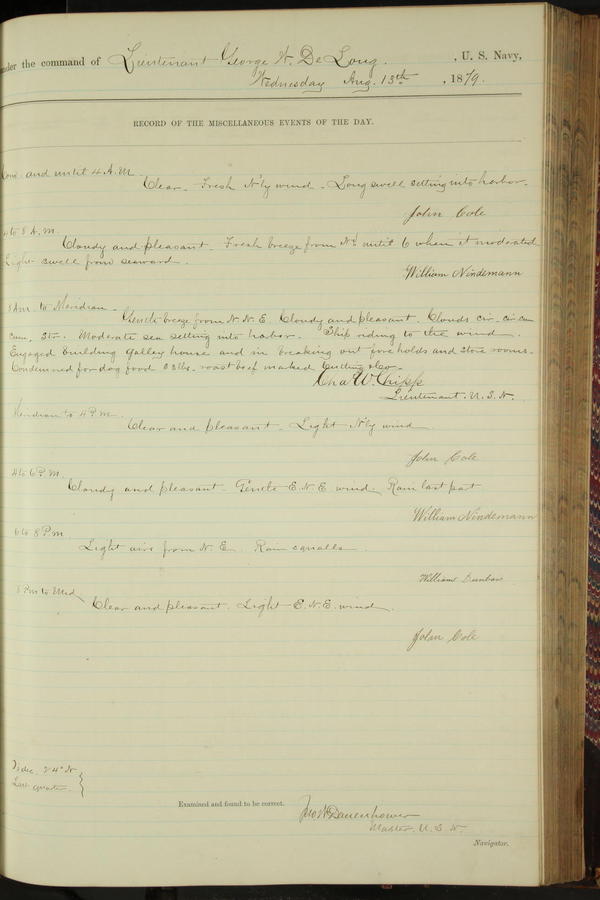 under the command of Lieutenant George W. De Long. , U. S. Navy,
Wednesday Aug. 13th , 1879.
RECORD OF THE MISCELLANEOUS EVENTS OF THE DAY.
and until 4 A.M.
Clear. Fresh N'ly wind. Long swell setting into harbor.
John Cole
4 to 8 A.M.
Cloudy and pleasant. Fresh breeze from Nd until 6 when it moderated
Light swell from seaward.
William Nindemann
8 A.M. to Meridian.
Gentle breeze from N.N.E. Cloudy and pleasant. Clouds cir. cir cum
cum, Str. Moderate sea setting into harbor. Ship riding to the wind.
Engaged building Galley house and in breaking out fore holds and store rooms.
Condemned for dog food lbs. roast beef marked Cutting & Co.
Chas W. Chipp
Lieutenant. U.S.N.
Meridian to 4 P.M.
Clear and pleasant. Light N'ly wind
John Cole
4 to 6 P.M.
Cloudy and pleasant. Gentle E.N.E. wind. Rain last part
William Nindemann
6 to 8 P.M.
Light airs from N.E. Rain squalls.
William Dunbar
8 P.M. to Mid
Clear and pleasant. Light E.N.E. wind.
John Cole
dec. 24° N
Last quarter.
Examined and found to be correct.
Jno W Danenhower
Master. U.S.N.
Navigator.